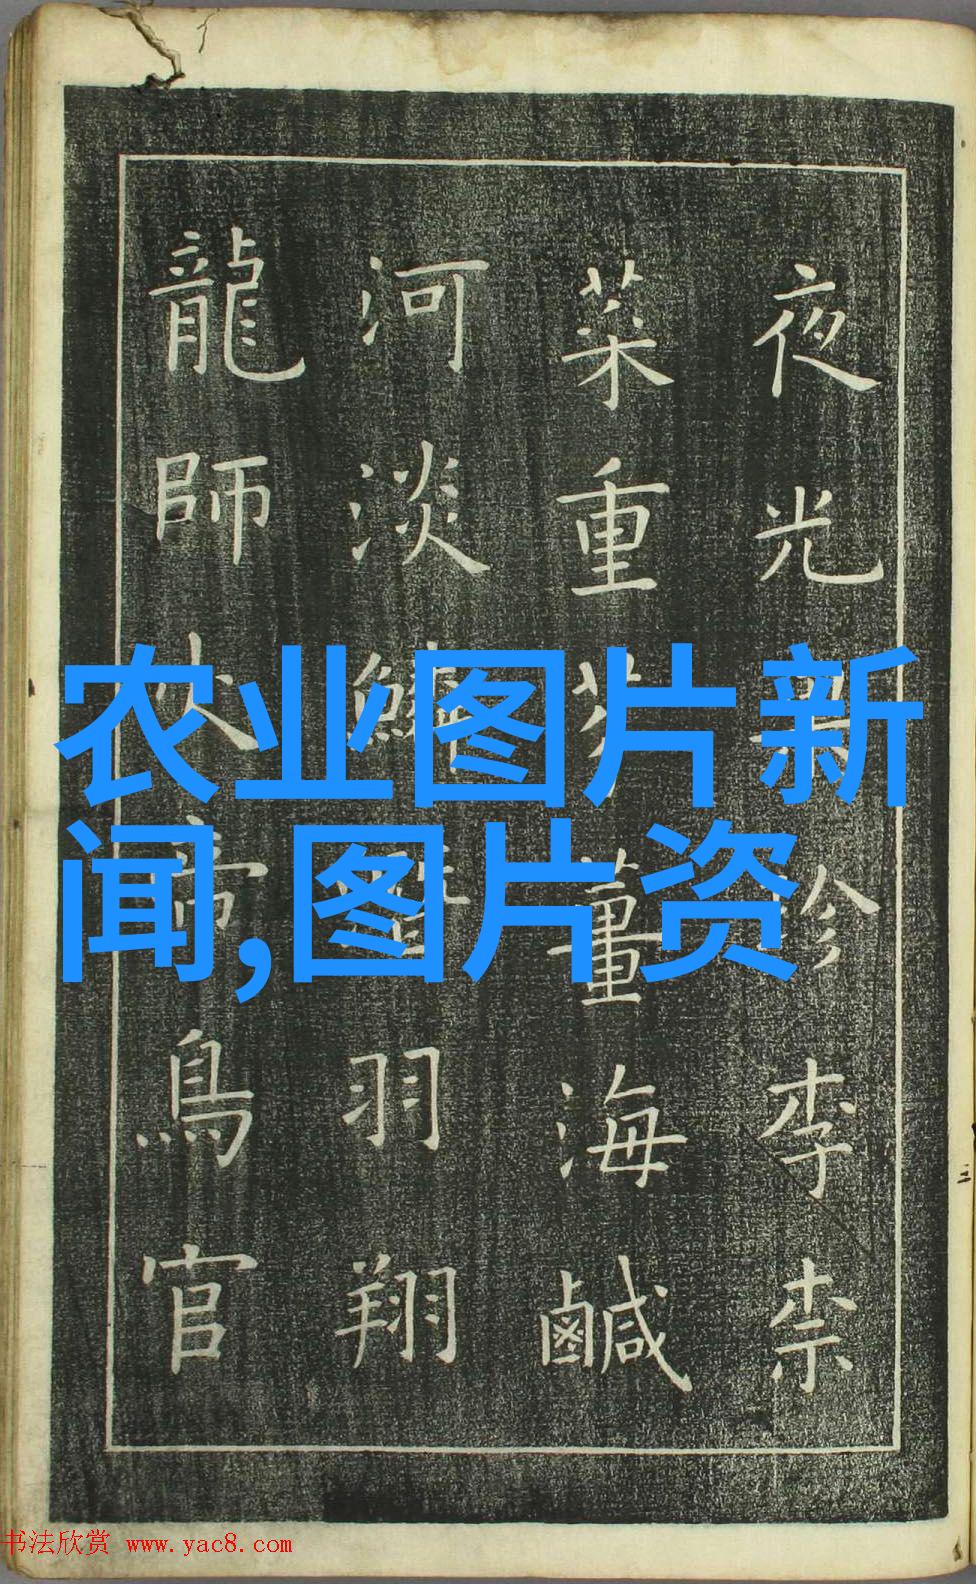 夜光果珍李柰
菜重芥薑海鹹
河淡鱗潛羽翔
龍師火帝鳥官
农业图片新
闻,图片资
书法欣赏 www.yac8.com